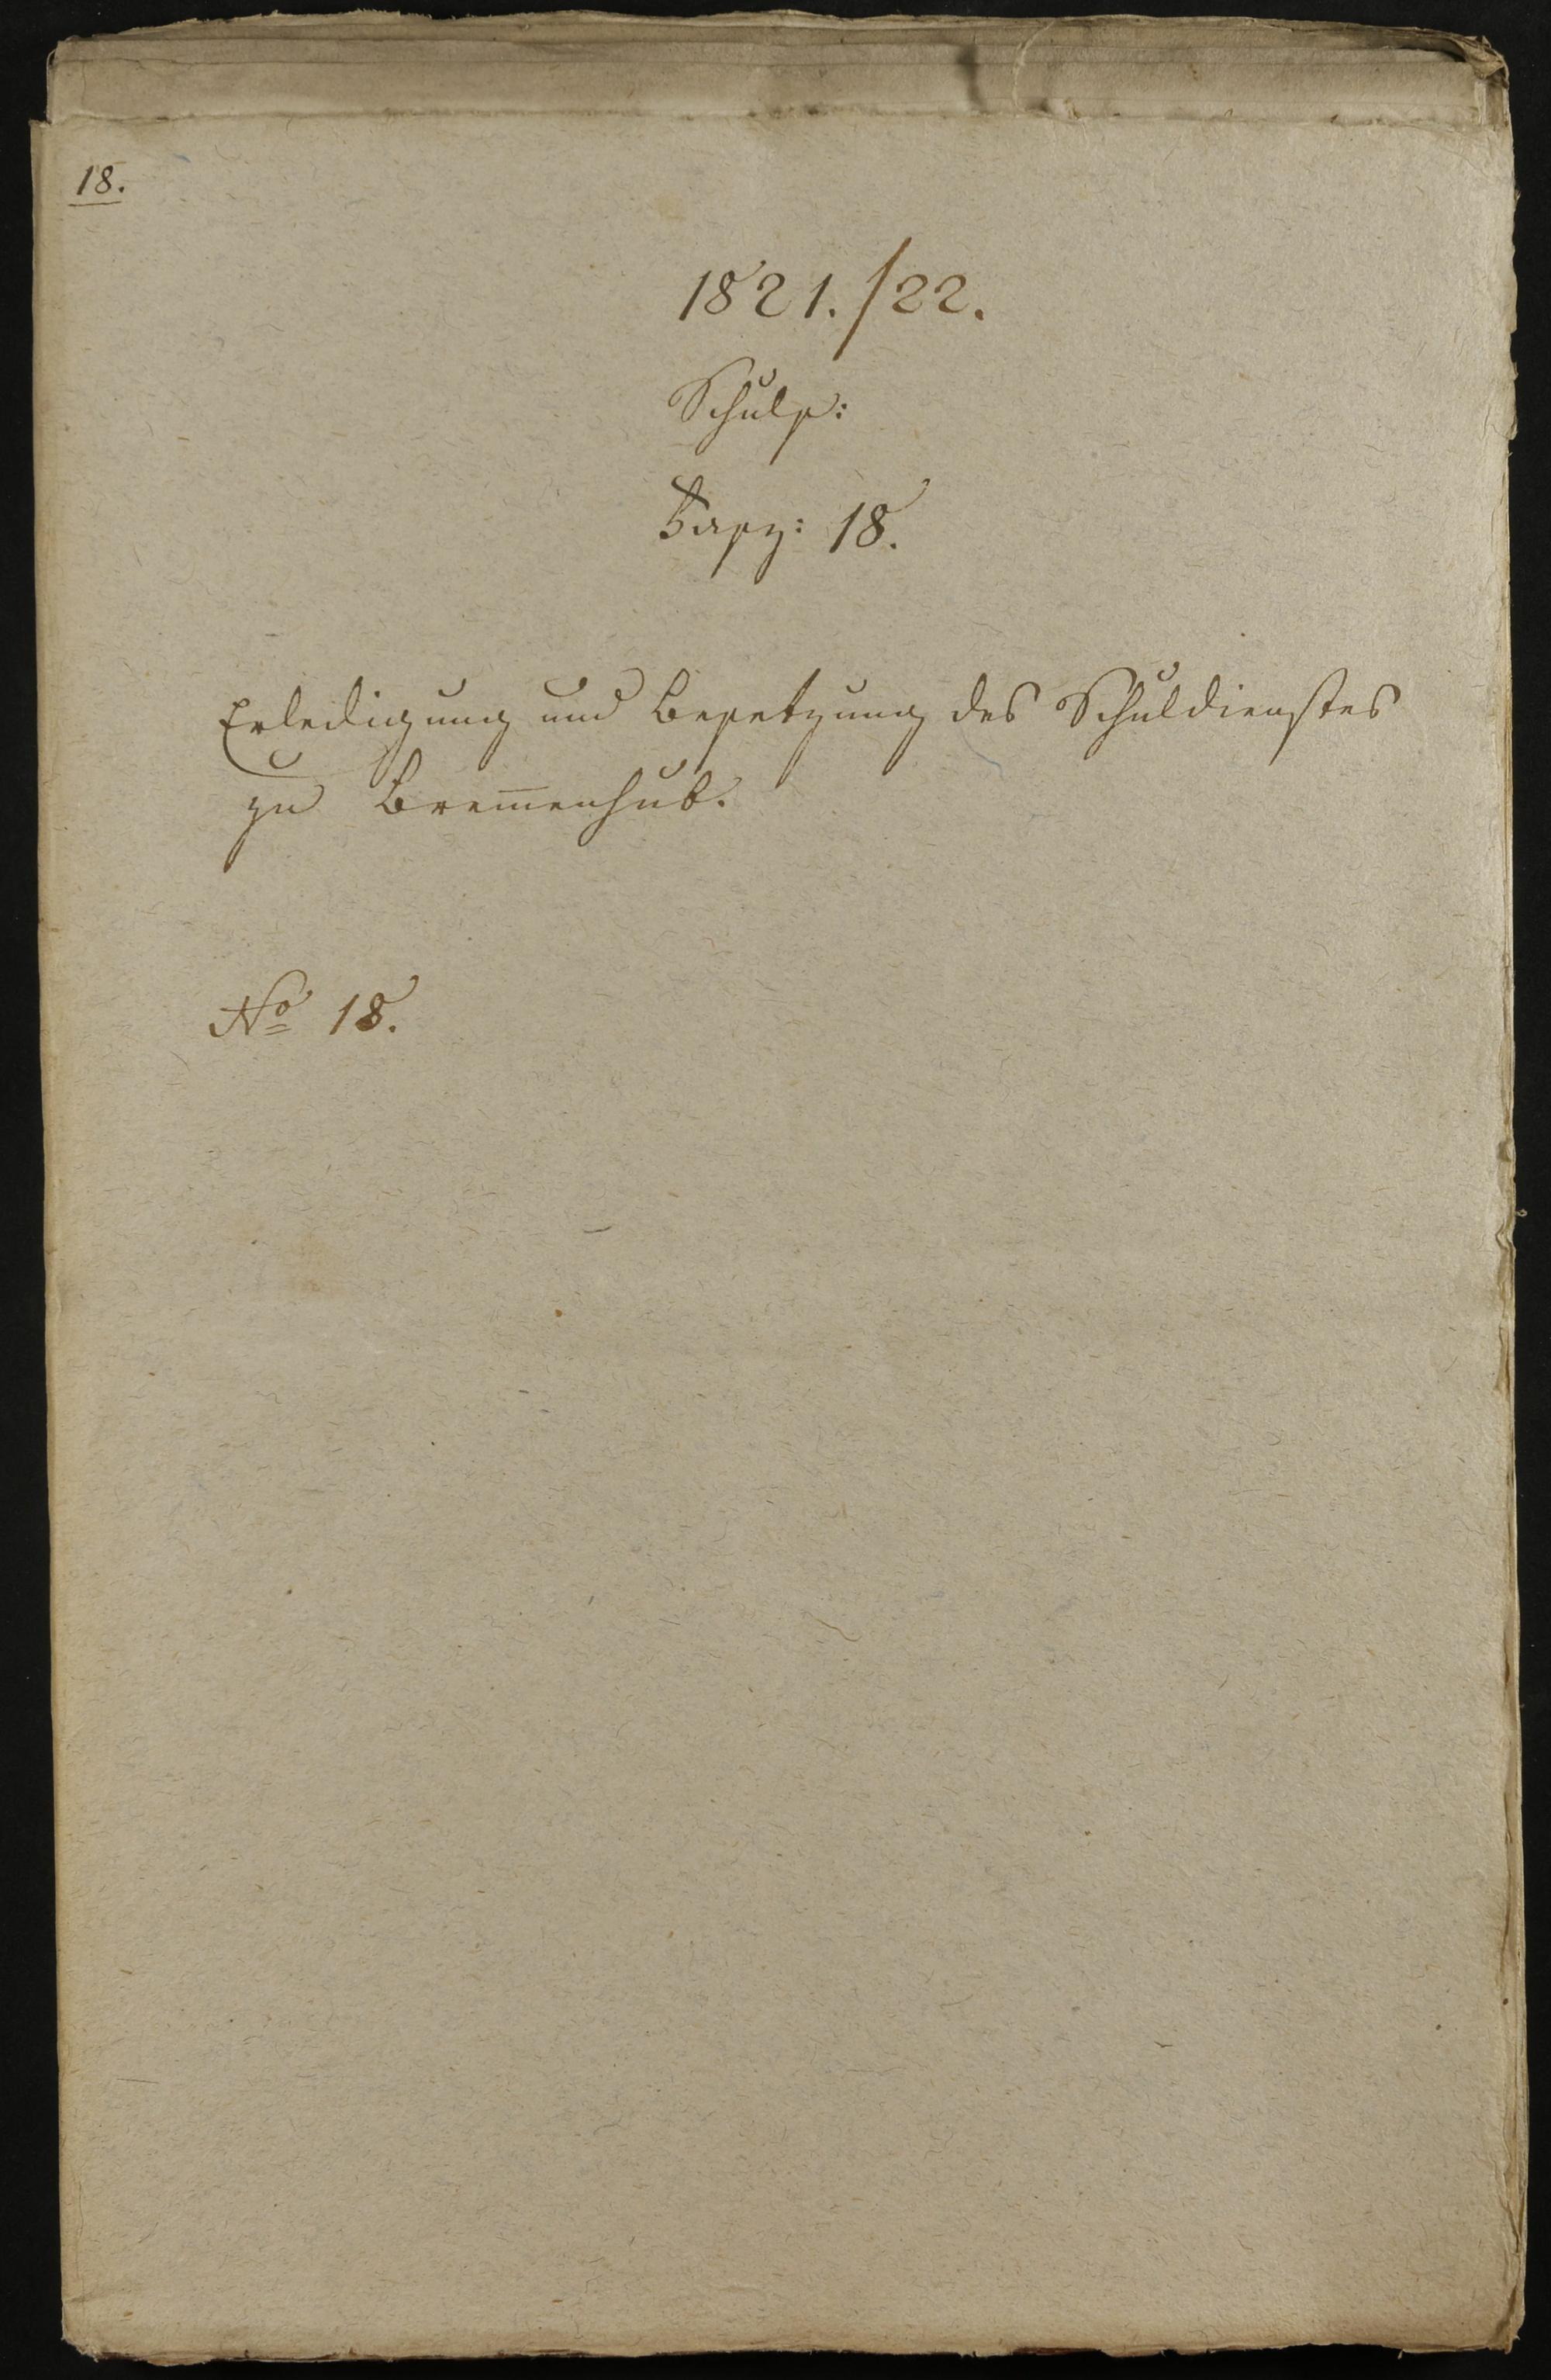 18.
1821./22.
Schuls:
Fasz: 18.
Erledigung und Besetzung des Schuldienstes
zu Brem̅enhub.
No 18.